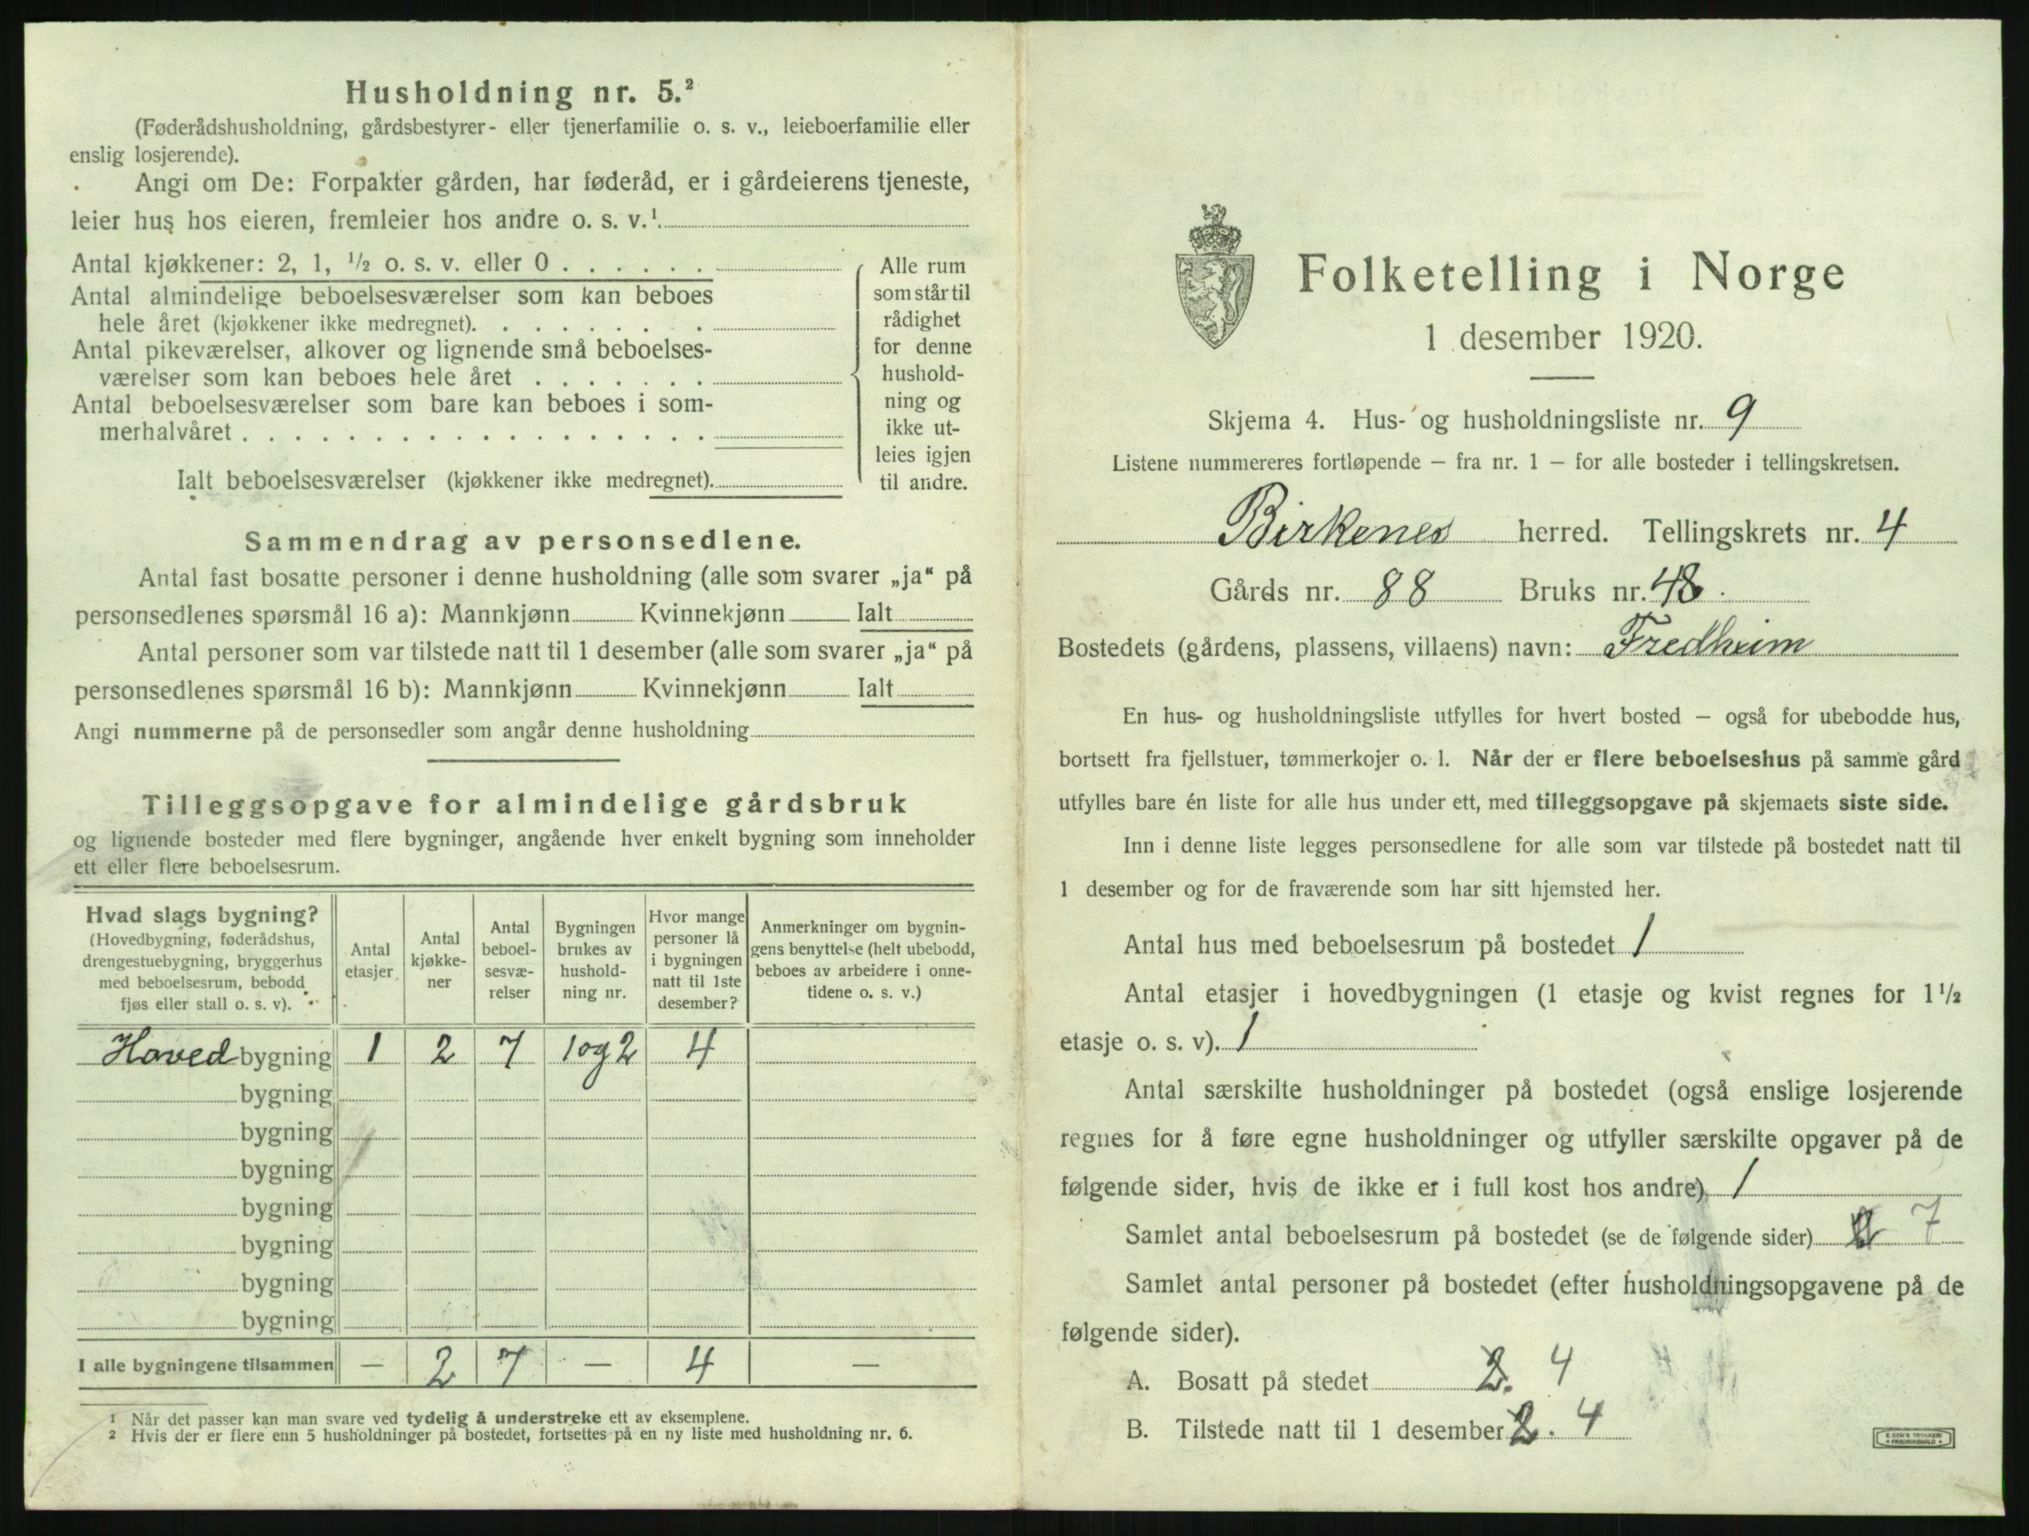 Husholdning nr. 5.²
(Føderådshusholdning, gårdsbestyrer- eller tjenerfamilie o. s. v., leieboerfamilie eller
enslig losjerende).
Angi om De: Forpakter gården, har føderåd, er i gårdeierens tjeneste,
leier hus hos eieren, fremleier hos andre o. s. v.¹.
Antal kjøkkener: 2, 1, ½ o. s. v. eller 0 . . . . . .
Antal almindelige beboelsesværelser som kan beboes
hele året (kjøkkener ikke medregnet). . . . . . . . .
Antal pikeværelser, alkover og lignende små beboelses-
værelser som kan beboes hele året . . . . . . .
Antal beboelsesværelser som bare kan beboes i som-
merhalvåret . . . . . . . . . . . . . . . . . .
Ialt beboelsesværelser (kjøkkener ikke medregnet).
Alle rum
som står til
rådighet
for denne
hushold-
ning og
ikke ut-
leies igjen
til andre.
Sammendrag av personsedlene.
Antal fast bosatte personer i denne husholdning (alle som svarer „ja“ på
personsedlenes spørsmål 16 a): Mannkjønn Kvinnekjønn Ialt
Antal personer som var tilstede natt til 1 desember (alle som svarer „ja“ på
personsedlenes spørsmål 16 b): Mannkjønn Kvinnekjønn Ialt
Angi nummerne på de personsedler som angår denne husholdning
Tilleggsopgave for almindelige gårdsbruk
og lignende bosteder med flere bygninger, angående hver enkelt bygning som inneholder
ett eller flere beboelsesrum.
Hvad slags bygning?
(Hovedbygning, føderådshus,
drengestuebygning, bryggerhus
med beboelsesrum, bebodd
fjøs eller stall o. s. v).
Antal
etasjer
Antal
kjøkke-
ner
Antal
beboel-
sesvæ-
relser
Bygningen
brukes av
hushold-
ning nr.
Hvor mange
personer lå
i bygningen
natt til 1ste
desember?
Anmerkninger om bygnin-
gens benyttelse (helt ubebodd,
beboes av arbeidere i onne-
tidene o. s. v.)
Hoved bygning 1 2 7 1 og 2 4
bygning
bygning
bygning
bygning
bygning
bygning
bygning
I alle bygningene tilsammen — 2 7 — 4 —
1 Når det passer kan man svare ved tydelig å understreke ett av eksemplene.
2 Hvis der er flere enn 5 husholdninger på bostedet, fortsettes på en ny liste med husholdning nr. 6.
Folketelling i Norge
1 desember 1920.
Skjema 4. Hus- og husholdningsliste nr. 9
Listene nummereres fortløpende – fra nr. 1 – for alle bosteder i tellingskretsen.
Birkenes herred. Tellingskrets nr. 4
Gårds nr. 88 Bruks nr. 48.
Bostedets (gårdens, plassens, villaens) navn: Fredheim
En hus- og husholdningsliste utfylles for hvert bosted – også for ubebodde hus,
bortsett fra fjellstuer, tømmerkojer o. l. Når der er flere beboelseshus på samme gård
utfylles bare én liste for alle hus under ett, med tilleggsopgave på skjemaets siste side.
Inn i denne liste legges personsedlene for alle som var tilstede på bostedet natt til
1 desember og for de fraværende som har sitt hjemsted her.
Antal hus med beboelsesrum på bostedet 1
Antal etasjer i hovedbygningen (1 etasje og kvist regnes for 1½
etasje o. s. v). 1
Antal særskilte husholdninger på bostedet (også enslige losjerende
regnes for å føre egne husholdninger og utfyller særskilte opgaver på de
følgende sider, hvis de ikke er i full kost hos andre). 1
Samlet antal beboelsesrum på bostedet (se de følgende sider) 2 7
Samlet antal personer på bostedet (efter husholdningsopgavene på de
følgende sider).
A. Bosatt på stedet 2. 4
B. Tilstede natt til 1 desember 2. 4